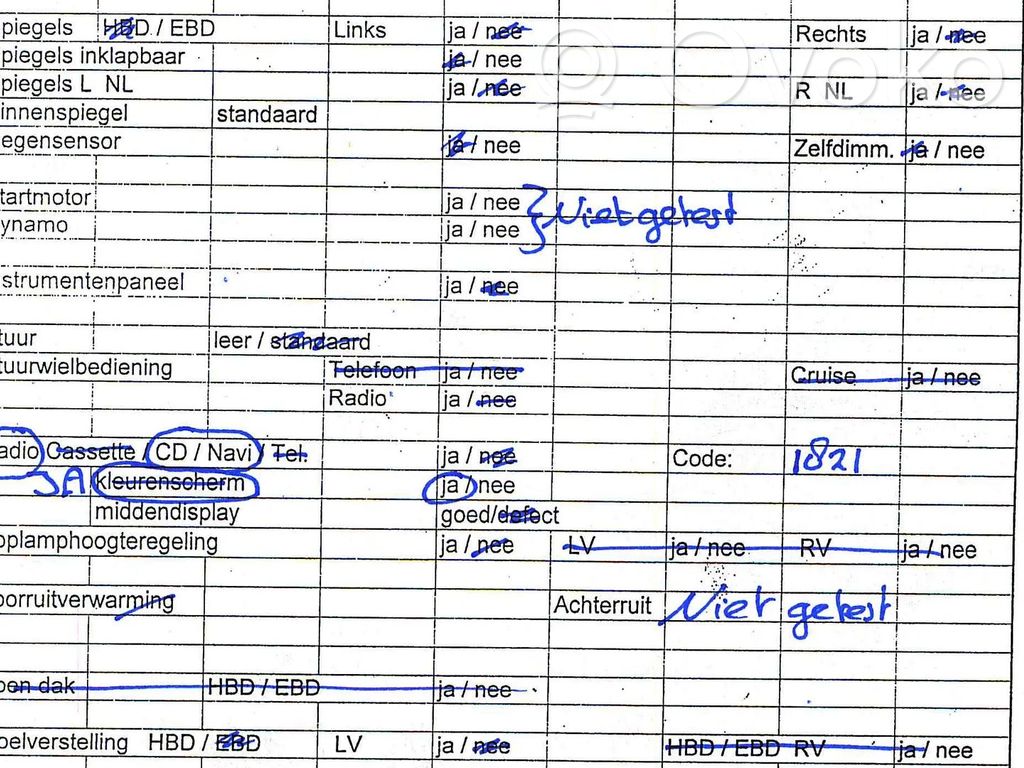 piegels HBD / EBD Links ja / nee Rechts ja / nee
piegels inklapbaar ja / nee
piegels L NL ja / nee R NL ja / nee
innenspiegel standaard
egensensor ja / nee Zelfdimm. ja / nee
tartmotor ja / nee
ynamo ja / nee
Niet getest
strumentenpaneel ja / nee
tuur leer / standaard
tuurwielbediening Telefoon ja / nee Cruise ja / nee
Radio ja / nee
adio Cassette / CD / Navi / Tel. ja / nee Code: 1821
JA kleurenscherm ja / nee
middendisplay goed/defect
oplamphoogteregeling ja / nee LV ja / nee RV ja / nee
oorruitverwarming Achterruit Niet getest
pen dak HBD / EBD ja / nee
oelverstelling HBD / EBD LV ja / nee HBD / EBD RV ja / nee
Ovoko